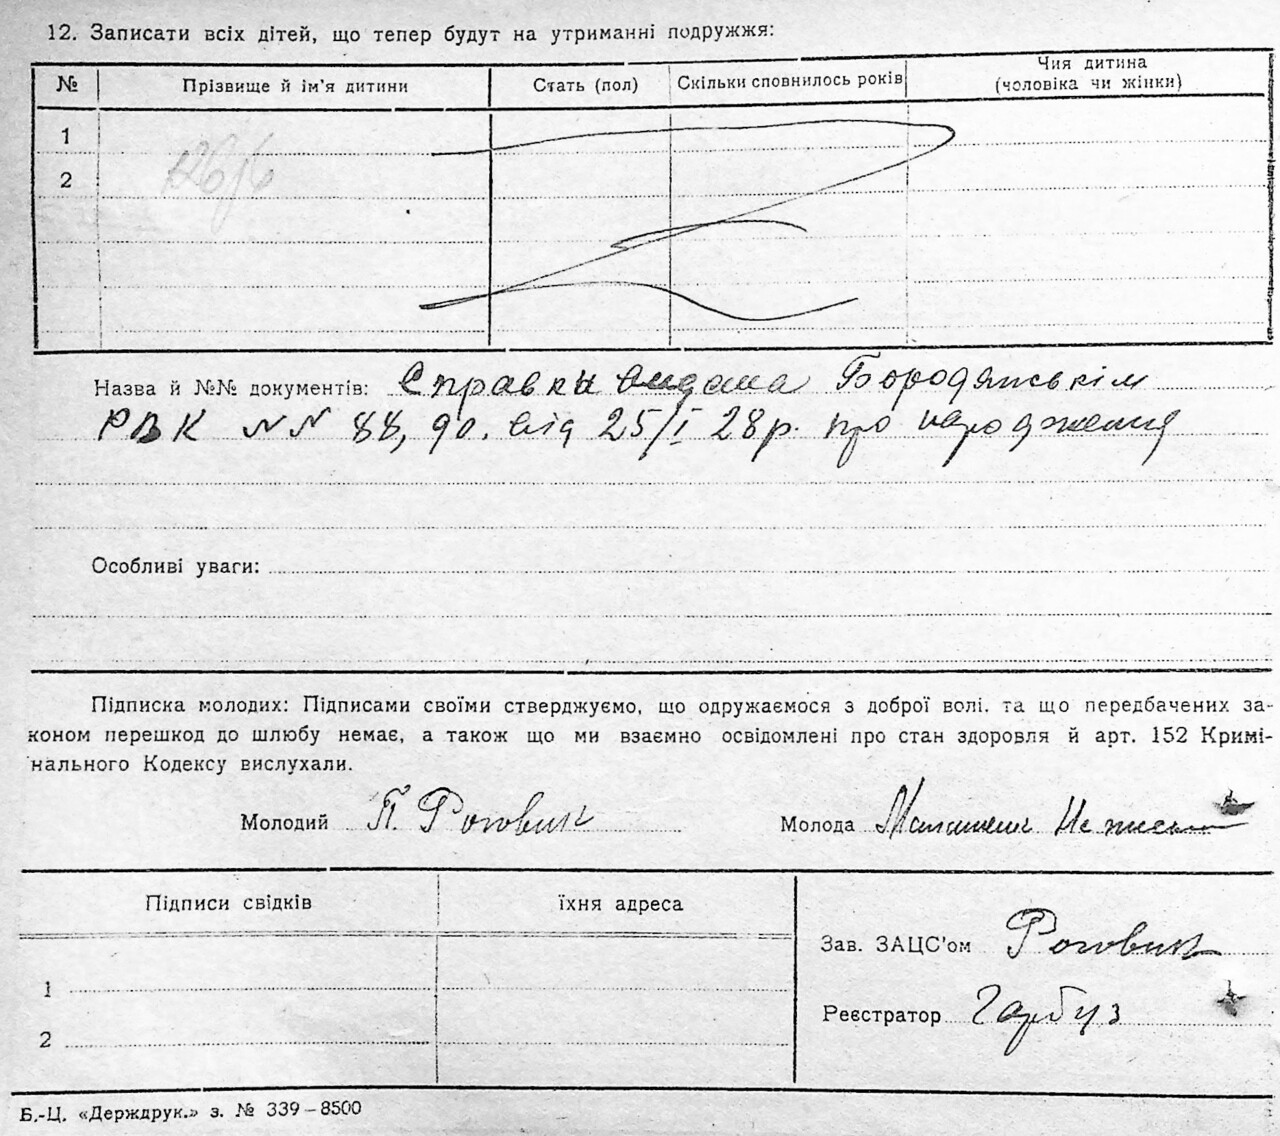 12. Записати всіх дітей, що тепер будут на утриманні подружжя:
№ Прізвище й ім'я дитини Стать (пол) Скільки сповнилось років Чия дитина (чоловіка чи жінки)
1
2
Назва й №№ документів: Справки видана Бородянськім
РВК NN 88, 90. від 25/I 28 р. про народження
Особливі уваги:
Підписка молодих: Підписами своїми стверджуємо, що одружаємося з доброї волі. та що передбачених за-
коном перешкод до шлюбу немає, а також що ми взаємно освідомлені про стан здоровля й арт. 152 Кримі-
нального Кодексу вислухали.
Молодий П. Роговик Молода
Підписи свідків їхня адреса
Зав. ЗАЦС'ом Роговик
1
Реєстратор Гарбуз
2
Б.-Ц. «Держдрук.» з. № 339–8500